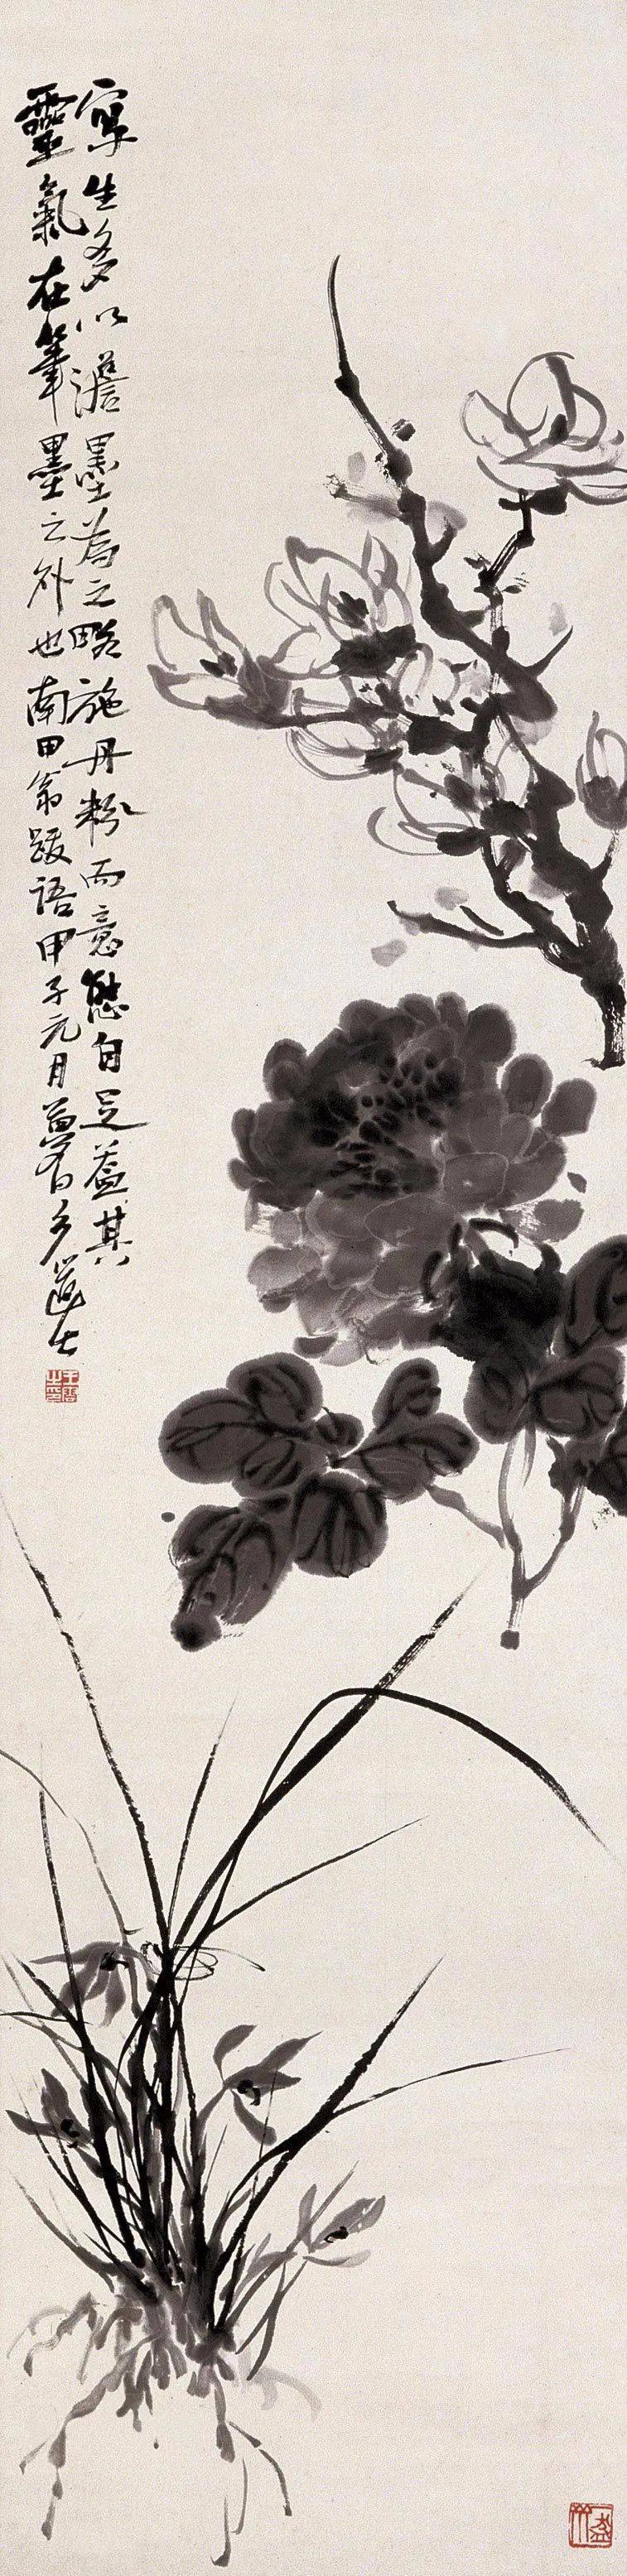 寫生多以澹墨為之略施丹粉而意態自足蓋其
靈氣在筆墨之外也南田翁跋語甲子元月夢白多道士